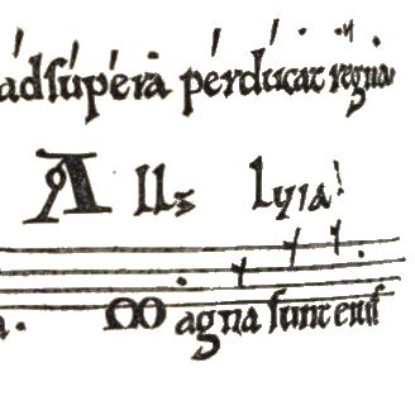 ad supera perducat regna
A ll s lyia
a. Magna sunt eni